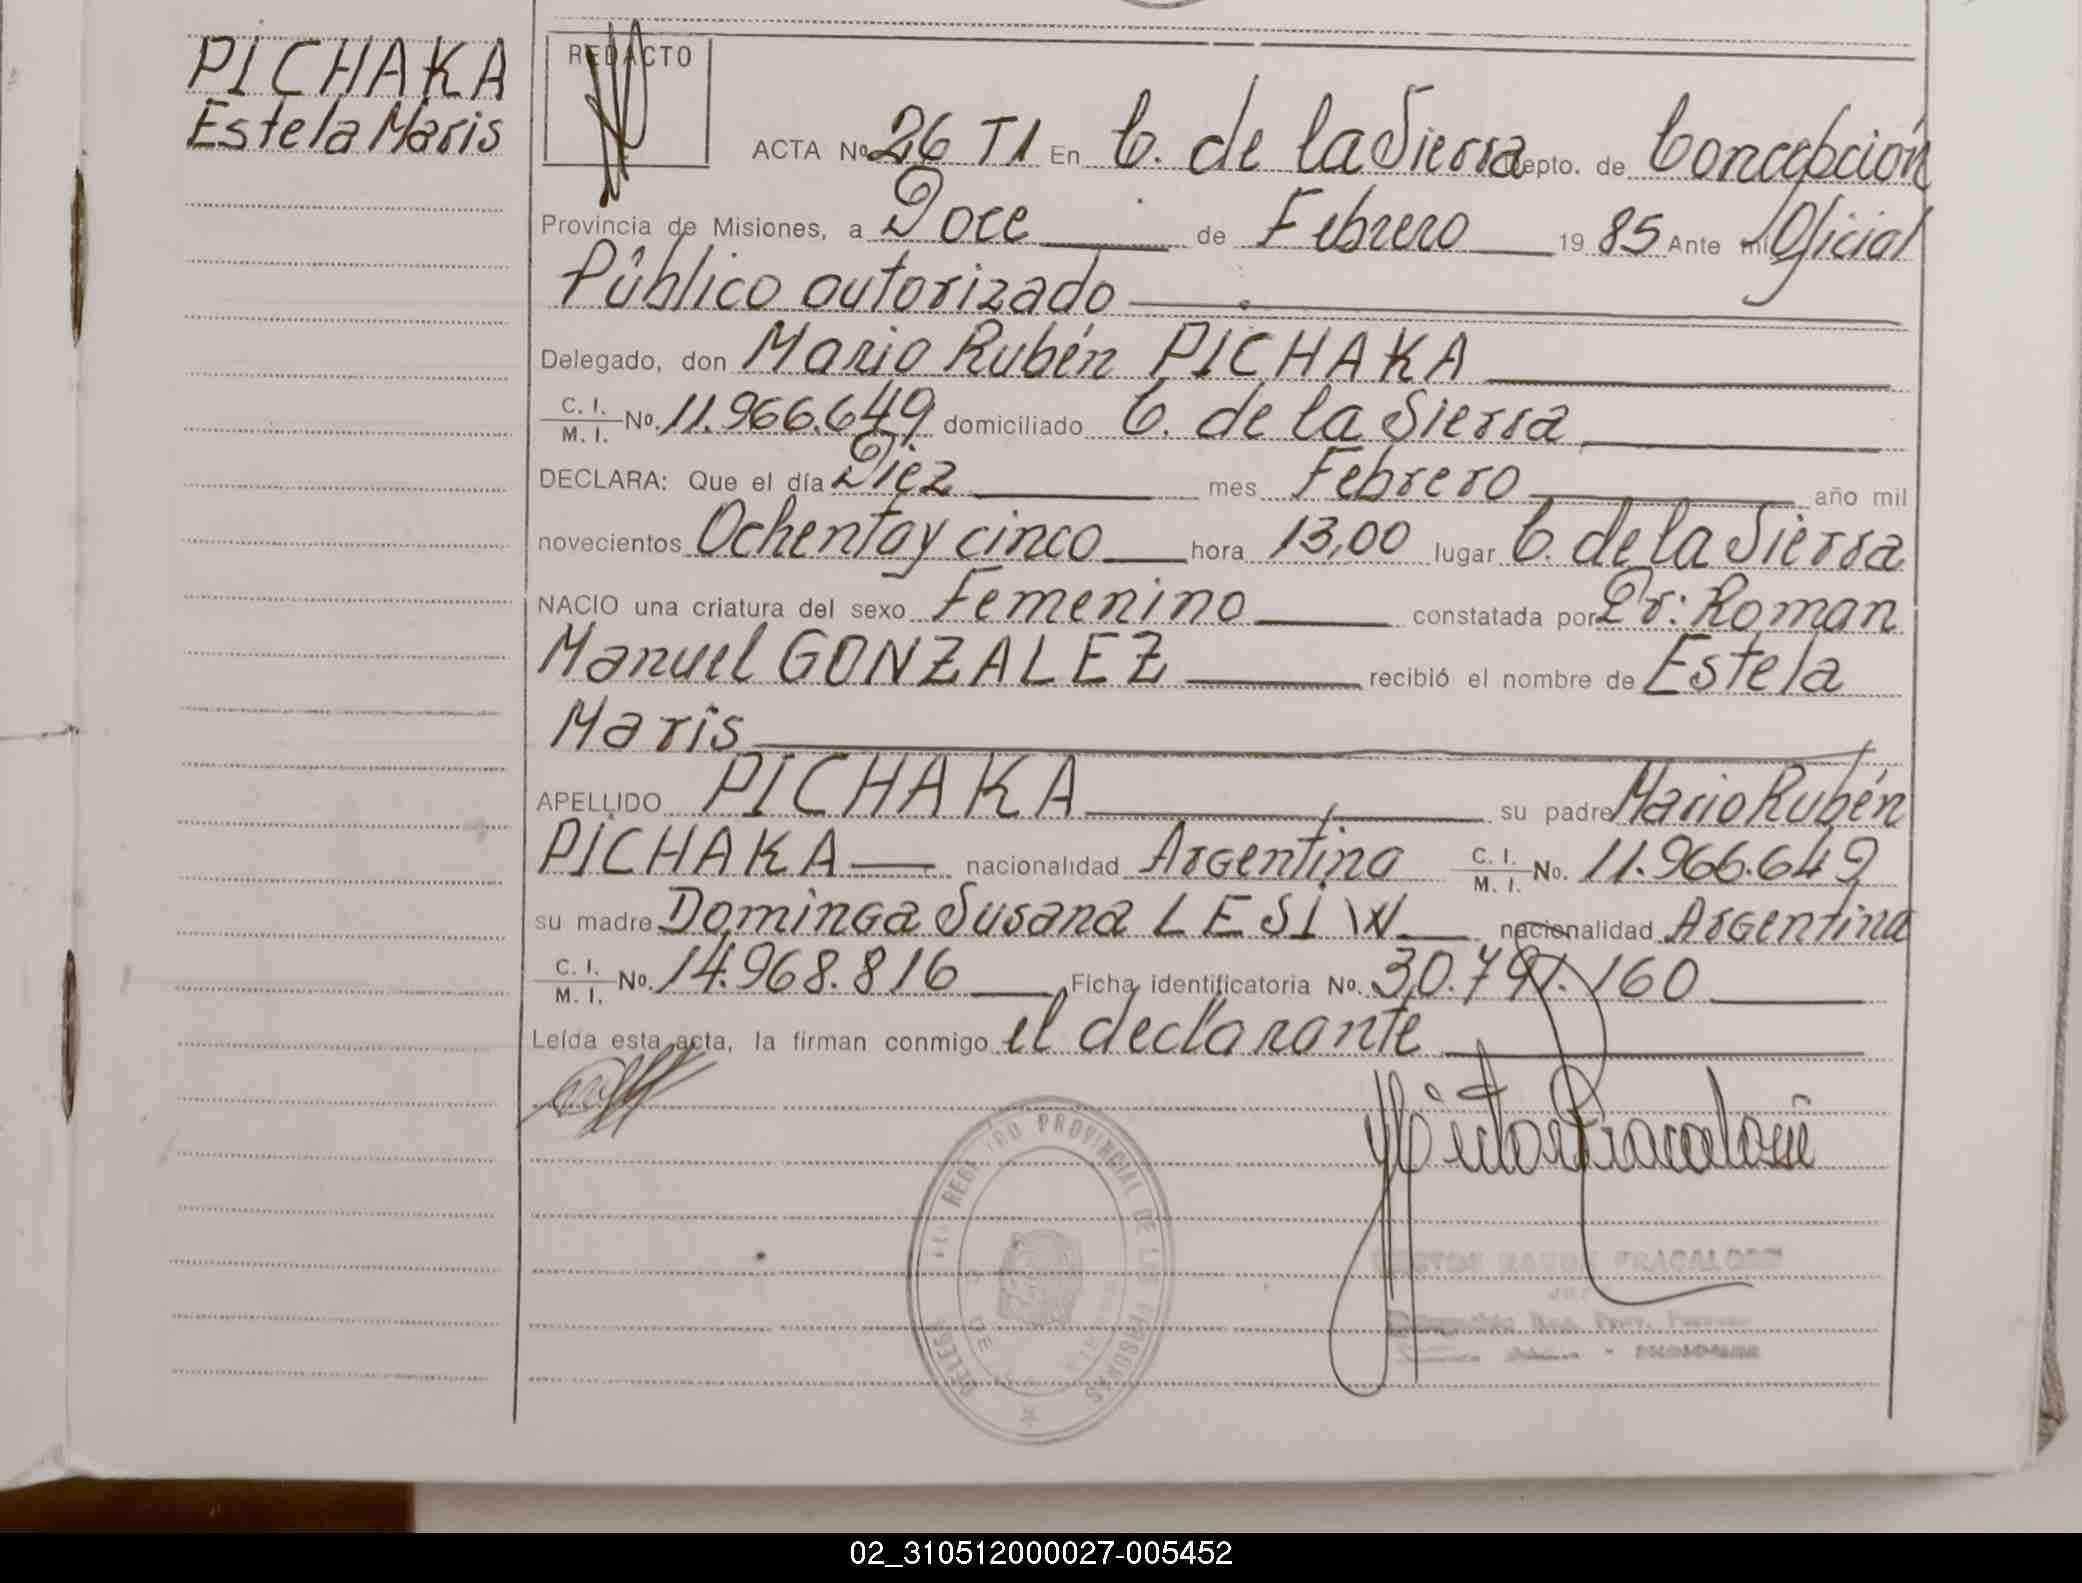 PICHAKA
Estela Maris
REDACTO
ACTA Nº 26 T1 En C. de la Sierra Depto. de Concepción
Provincia de Misiones, a Doce de Febrero 1985 Ante mi Oficial
Público autorizado
Delegado, don Mario Rubén PICHAKA
C. I. / M. I. No. 11.966.649 domiciliado C. de la Sierra
DECLARA: Que el día Diez mes Febrero año mil
novecientos Ochenta y cinco hora 13,00 lugar C. de la Sierra
NACIO una criatura del sexo Femenino constatada por Dr: Roman
Manuel GONZALEZ recibió el nombre de Estela
Maris
APELLIDO PICHAKA su padre Mario Rubén
PICHAKA nacionalidad Argentina C. I. / M. I. No. 11.966.649
su madre Dominga Susana LESIW nacionalidad Argentina
C. I. / M. I. No. 14.968.816 Ficha identificatoria No. 30.791.160
Leída esta acta, la firman conmigo el declarante
REGISTRO PROVINCIAL DE LAS PERSONAS
02_310512000027-005452